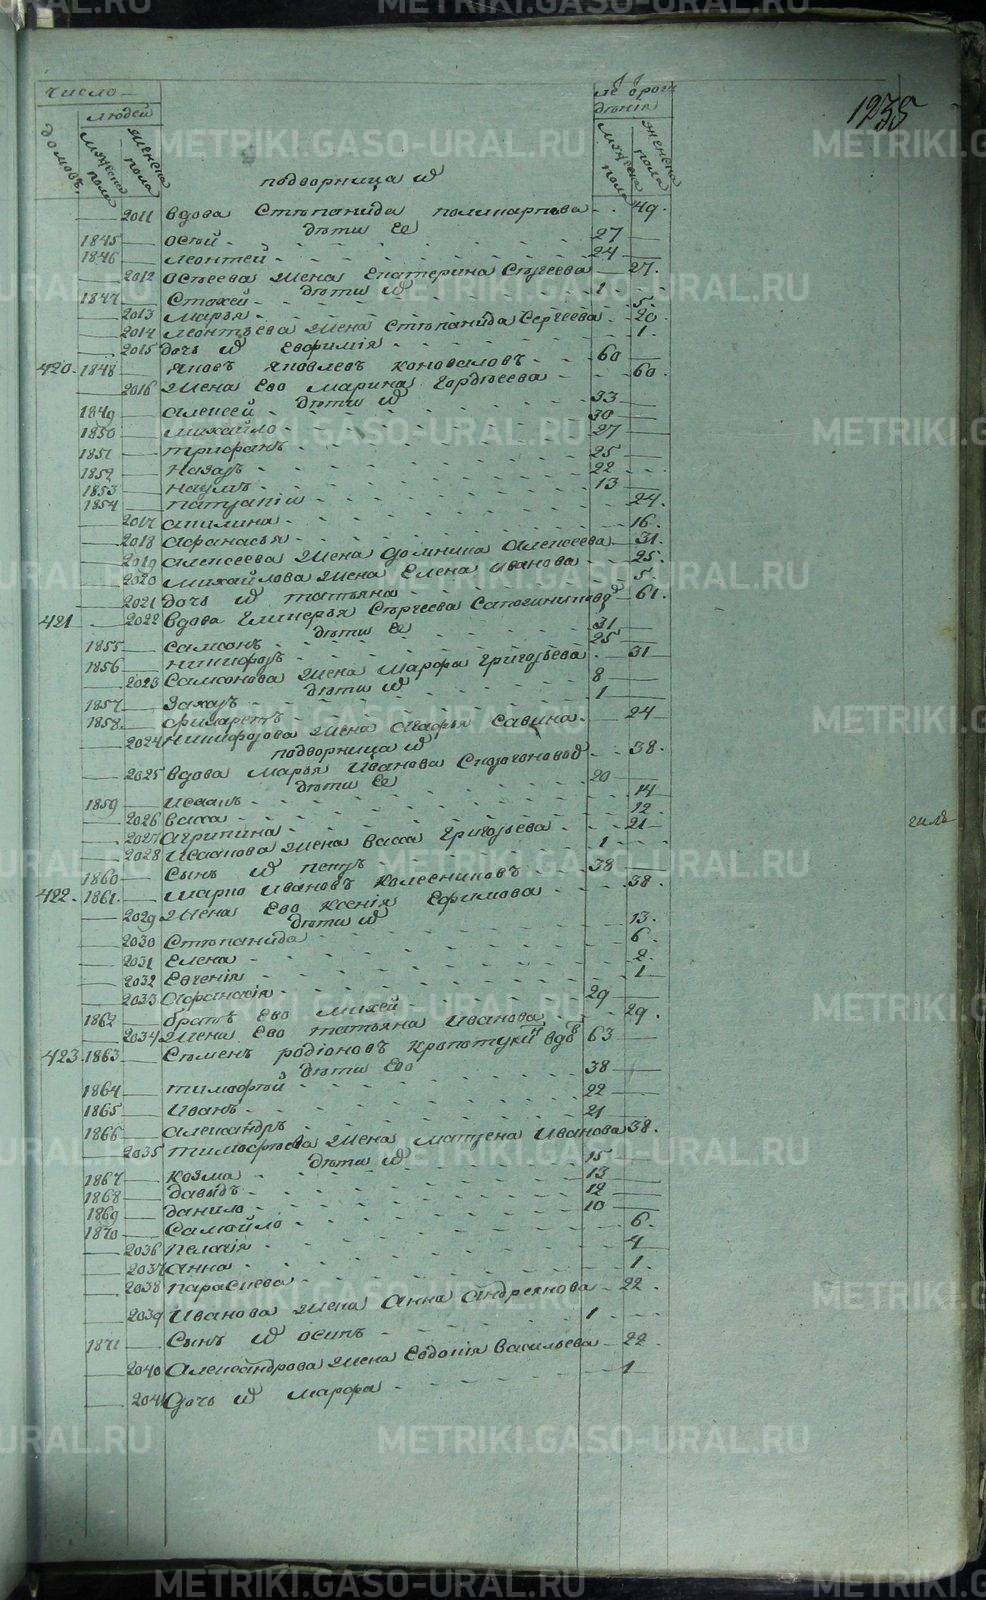 1235
число
людей
домовъ
мужеска пола
женска пола
мужеска пола
женска пола
подворница их
2011 вдова Стѣпанида поликарпова 49
дѣти ее
1845 осѣй 27
1846 леонтей 24
2012 осѣева жена Екатерина Сѣргеева 27
дѣти их
1847 Стахей 1
2013 марья 5
2014 леонтьева жена Стѣпанида Сергеева 20
2015 дочь их Евфимія 1
420 1848 яковъ яковлевъ коноваловъ 60
2016 жена Ево марина Гордѣева 60
дѣти их
1849 алексей 33
1850 михайло 30
1851 трифанъ 27
1852 назаръ 25
1853 наумъ 22
1854 патракій 13
2017 акилина 24
2018 афанасья 16
2019 алексеева жена домника алексеева 31
2020 михайлова жена Елена иванова 25
2021 дочь их татьяна 5
421 2022 вдова Гликерья Сѣргеева 61
дѣти ее
1855 самсонъ 31
1856 никифоръ 25
2023 Самсонова жена марфа григорьева 31
дѣти их
1857 захаръ 8
1858 филаретъ 1
2024 никифорова жена агафья савина 24
подворница их
2025 вдова марья Иванова 38
дѣти ее
1859 исаакъ 20
2026 васса 14
2027 агрипина 12
2028 исаакова жена васса григорьева 21
1860 Сынъ их петръ 1
422 1861 марко Ивановъ колесниковъ 38
2029 жена Ево ксенія Ефимова 38
дѣти их
2030 Стѣпанида 13
2031 Елена 6
2032 Евгенія 2
2033 афанасія 1
1862 братъ ево михей 29
2034 жена Ево татьяна Иванова 29
423 1863 Сѣменъ родіоновъ кропотухинъ вдовъ 63
дѣти Ево
1864 тимофѣй 38
1865 Иванъ 22
1866 александръ 21
2035 тимофѣева жена матрена иванова 38
дѣти их
1867 козма 15
1868 давыдъ 13
1869 данило 12
1870 Самойло 10
2036 пелагія 6
2037 анна 4
2038 парасковея 1
2039 Иванова жена анна андреянова 22
1871 Сынъ их осипъ 1
2040 александрова жена Евдокія васильева 22
2041 дочь их марфа 1
METRIKI.GASO-URAL.RU